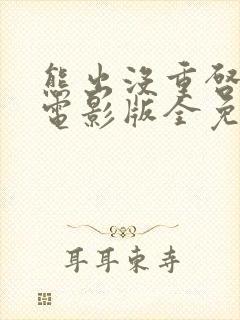 熊出没重启
电影版全免
耳耳東寺